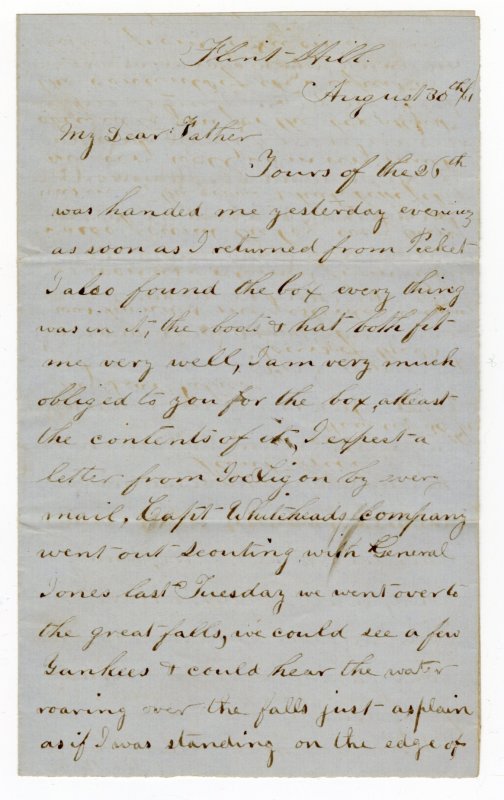 Flint Hill.
August 30th/61
My Dear Father
Yours of the 26th
was handed me yesterday evening
as soon as I returned from Picket
I also found the box every thing
was in it, the boots & hat both fit
me very well, I am very much
obliged to you for the box, atleast
the contents of it, I expect a
letter from Joe Ligon by every
mail, Capt Whiteheads Company
went out scouting with General
Jones last Tuesday we went over to
the great falls, we could see a few
Yankees & could hear the water
roaring over the falls just as plain
as if I was standing on the edge of